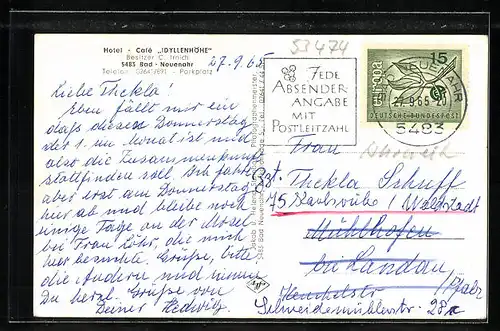 Hotel - Café „IDYLLENHÖHE"
Besitzer C. Irnich
5483 Bad - Neuenahr
Telefon 02641/691 - Parkplatz
27.9.65
53474
Liebe Thekla!
Eben fällt mir ein
daß dieser Donnerstag
der 1. im Monat ist und
also die Zusammenkunft
stattfinden soll. Ich fahre
aber erst am Donnerstag
hier ab und bleibe noch
einige Tage an der Mosel
bei Frau Löhr, die mich
hier besuchte. Grüße, bitte
die Andern und nimm
Du herzl. Grüße von
Deiner Hedwig
JEDE
ABSENDER-
ANGABE
MIT
POSTLEITZAHL
NEUENAHR
27.-9.65-20
5483
15
europa
CEPT
DEUTSCHE BUNDESPOST
Frau
Thekla Schuff
75 Karlsruhe / Waldstadt
Mühlhofen
bei Landau
/Pfalz
Schneidemühlerstr. 28a